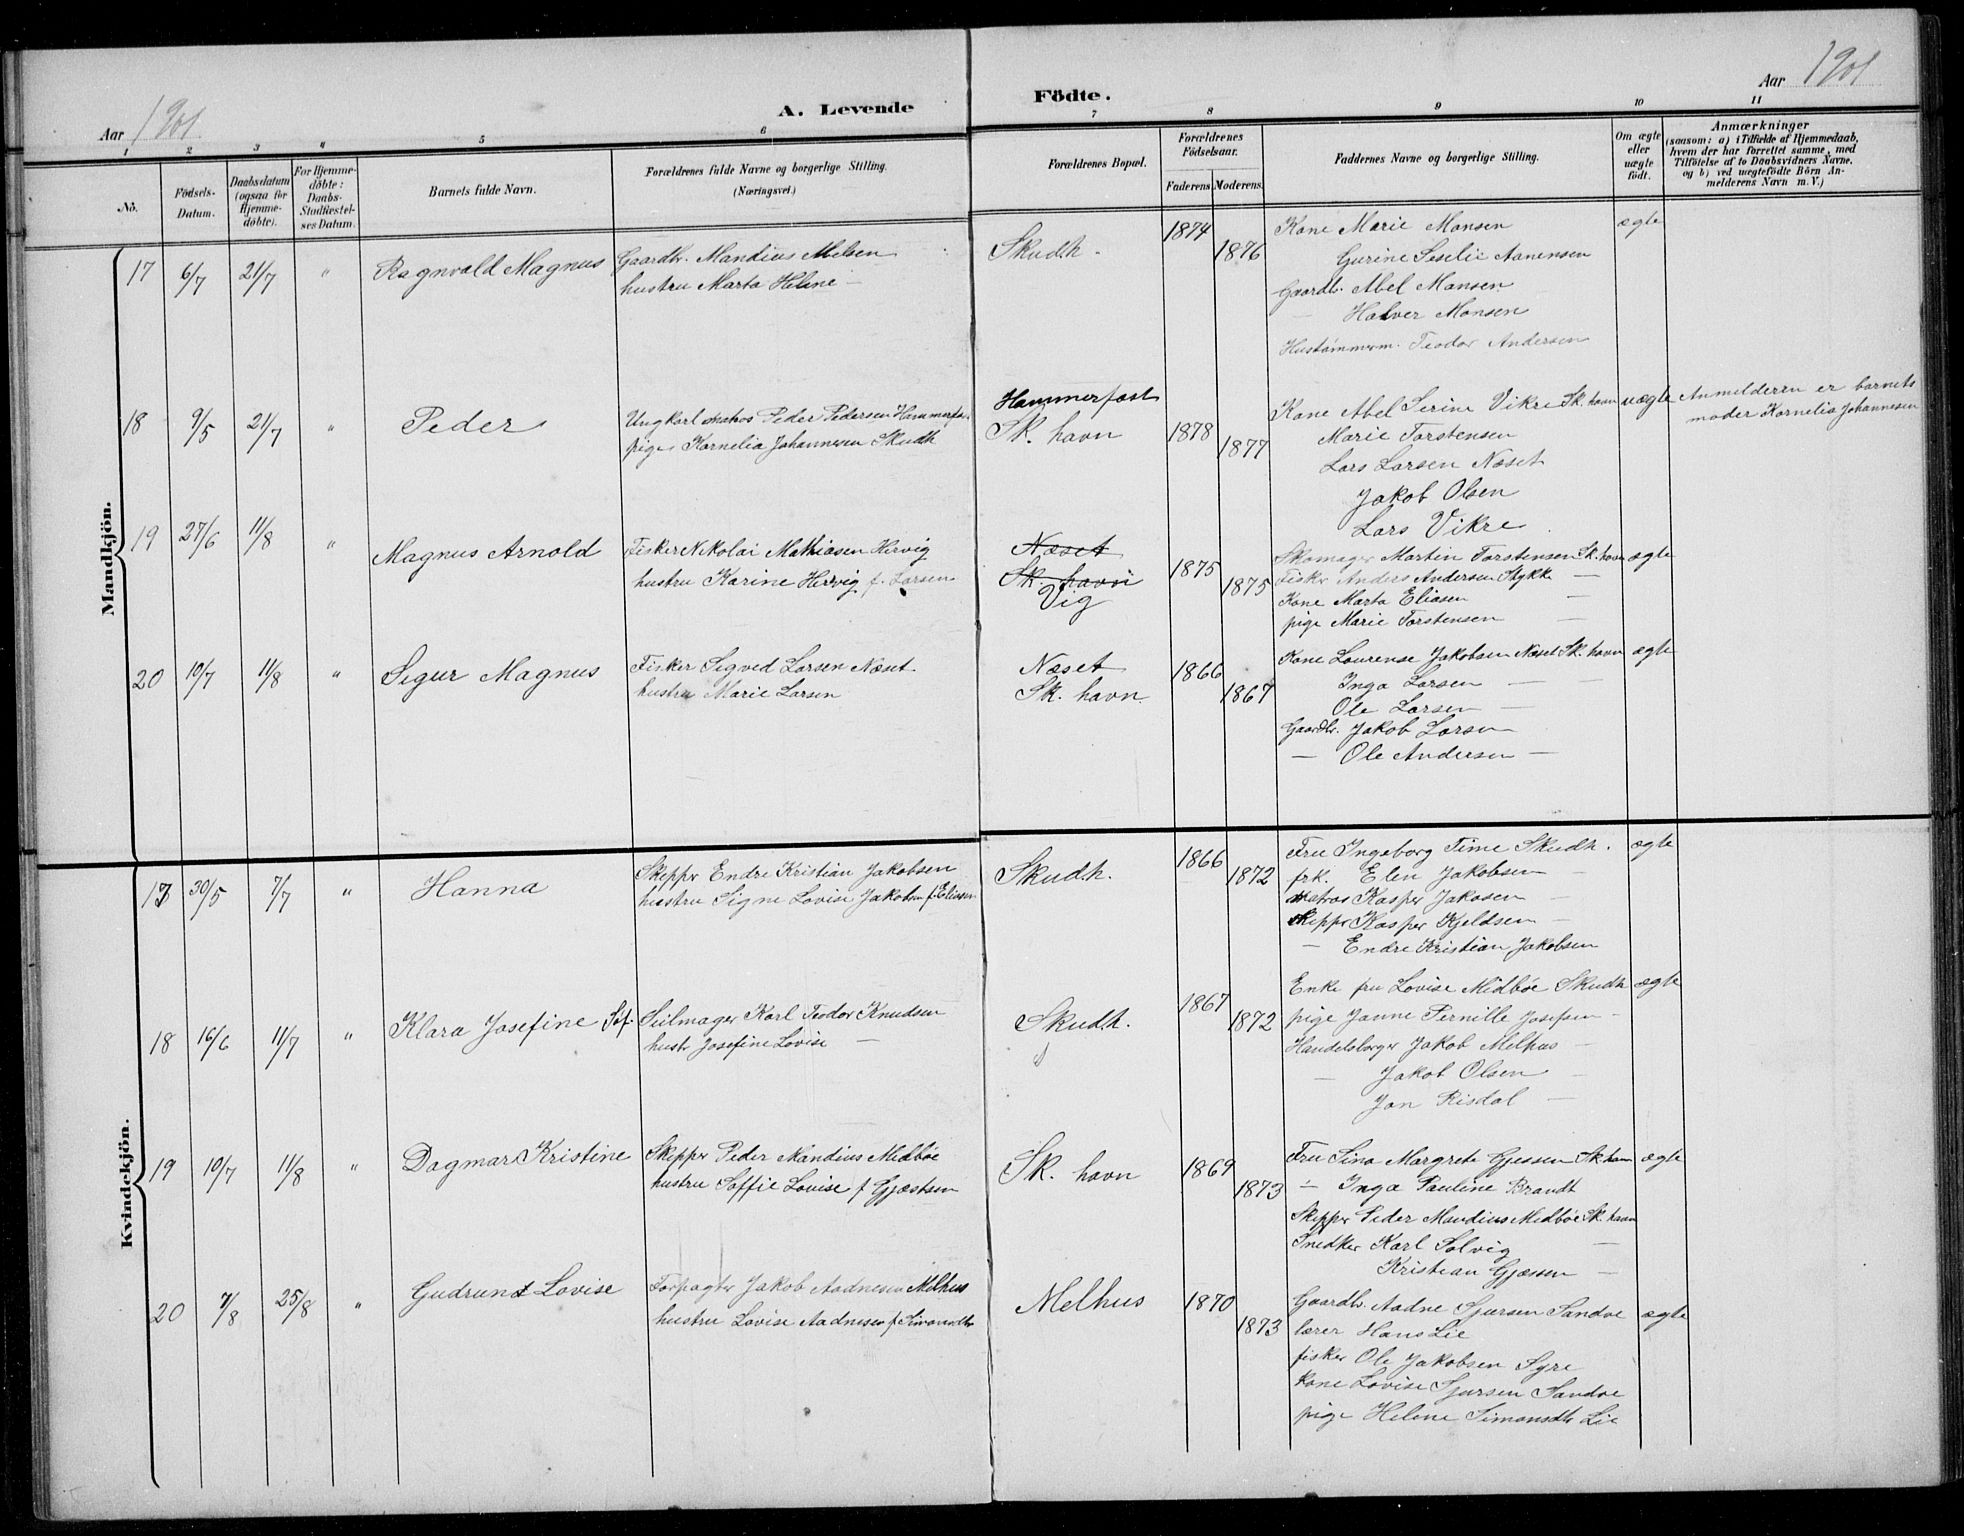 Aar 1901
A. Levende Födte.
Aar 1901
1 2 3 4 5 6 7 8 9 10 11
No.
Födsels-Datum.
Daabsdatum (ogsaa for Hjemmedöbte).
For Hjemmedöbte: Daabs-Stadfæstelses Datum.
Barnets fulde Navn.
Forældrenes fulde Navne og borgerlige Stilling.
(Næringsvei.)
Forældrenes Bopæl.
Forældrenes Födselsaar.
Faderens. Moderens.
Faddernes Navne og borgerlige Stilling.
Om ægte eller uægte födt.
Anmærkninger
(saasom: a) i Tilfælde af Hjemmedaab, hvem der har forrettet samme, med Tilföielse af to Daabsvidners Navne, og b) ved uægtefödte Börn Anmelderens Navn m. V.)
Mandkjön.
17 6/7 21/7 " Ragnvald Magnus
Gaardb. Mandius Melsen
hustru Marta Heline —
Skudh. 1874 1876
Kone Marie Monsen
Gurine Seselie Aanensen
Gaardb. Abel Monsen
— Halver Monsen
Hustømmerm. Teodor Andersen
ægte
18 9/5 21/7 " Peder
Ungkarl matros Peder Pedersen Hammerfest
pige Kornelia Johannesen Skudh
Hammerfest
Sk. havn 1878 1877
Kone Abel Serine Vikre Sk. havn
Marie Torstensen
Lars Larsen Næset
Jakob Olsen
Lars Vikre
uægte
Anmelderen er barnets
moder Kornelia Johannesen
19 27/6 11/8 " Magnus Arnold
Fisker Nikolai Mathiasen Hervig
hustru Karine Hervig f. Larsen
Næset
Sk. havn
Vig 1875 1875
Skomager Martin Torstensen Sk. havn
Fisker Anders Andersen Stykke —
Kone Marta Eliasen —
pige Marie Torstensen —
ægte
20 10/7 11/8 " Sigur Magnus
Fisker Sigved Larsen Næset.
hustru Marie Larsen
Næset
Sk. havn. 1866 1867
Kone Laurense Jakobsen Næset Sk. havn
Inga Larsen — —
Ole Larsen —
Gaardb. Jakob Larsen
— Ole Andersen —
ægte
Kvindekjön.
17 30/5 7/7 " Hanna
Skipper Endre Kristian Jakobsen
hustru Signe Lovise Jakobsen f. Eliasen
Skudh. 1866 1872
Fru Ingeborg Time Skudh.
frk. Elen Jakobsen —
matros Kasper Jakosen —
skipper Kasper Kjeldsen —
— Endre Kristian Jakobsen
ægte
18 16/6 11/7 " Klara Josefine Sof.
Seilmager Karl Teodor Knudsen
hustr Josefine Lovise —
Skudh. 1867 1872
Enke fru Lovise Midbøe Skudh
pige Janne Pernille Josefsen —
Handelsborger Jakob Melhus —
— Jakob Olsen —
Jan Risdal —
ægte
19 10/7 11/8 " Dagmar Kristine
Skipper Peder Mandius Midbøe
hustru Soffie Lovise f Gjæstsen
Sk. havn 1869 1873
Fru Sina Margrete Gjessen Sk havn
— Inga Pauline Brandt
Skipper Peder Mandius Midbøe Sk. havn
Snedker Karl Solvig —
Kristian Gjæssen —
ægte
20 7/8 25/8 " Gudrund Lovise
Forpagter Jakob Aadnesen Melhus
hustru Lovise Aadnesen f. Simonsdtr
Melhus 1870 1873
Gaardb. Aadne Sjursen Sandve
lærer Hans Lie
fisker Ole Jakobsen Syre
kone Lovise Sjursen Sandve
pige Heline Simonsdtr Lie
ægte